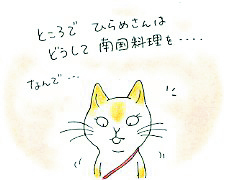 ところで ひらめさんは
どうして 南国料理を・・・・
なんで・・・